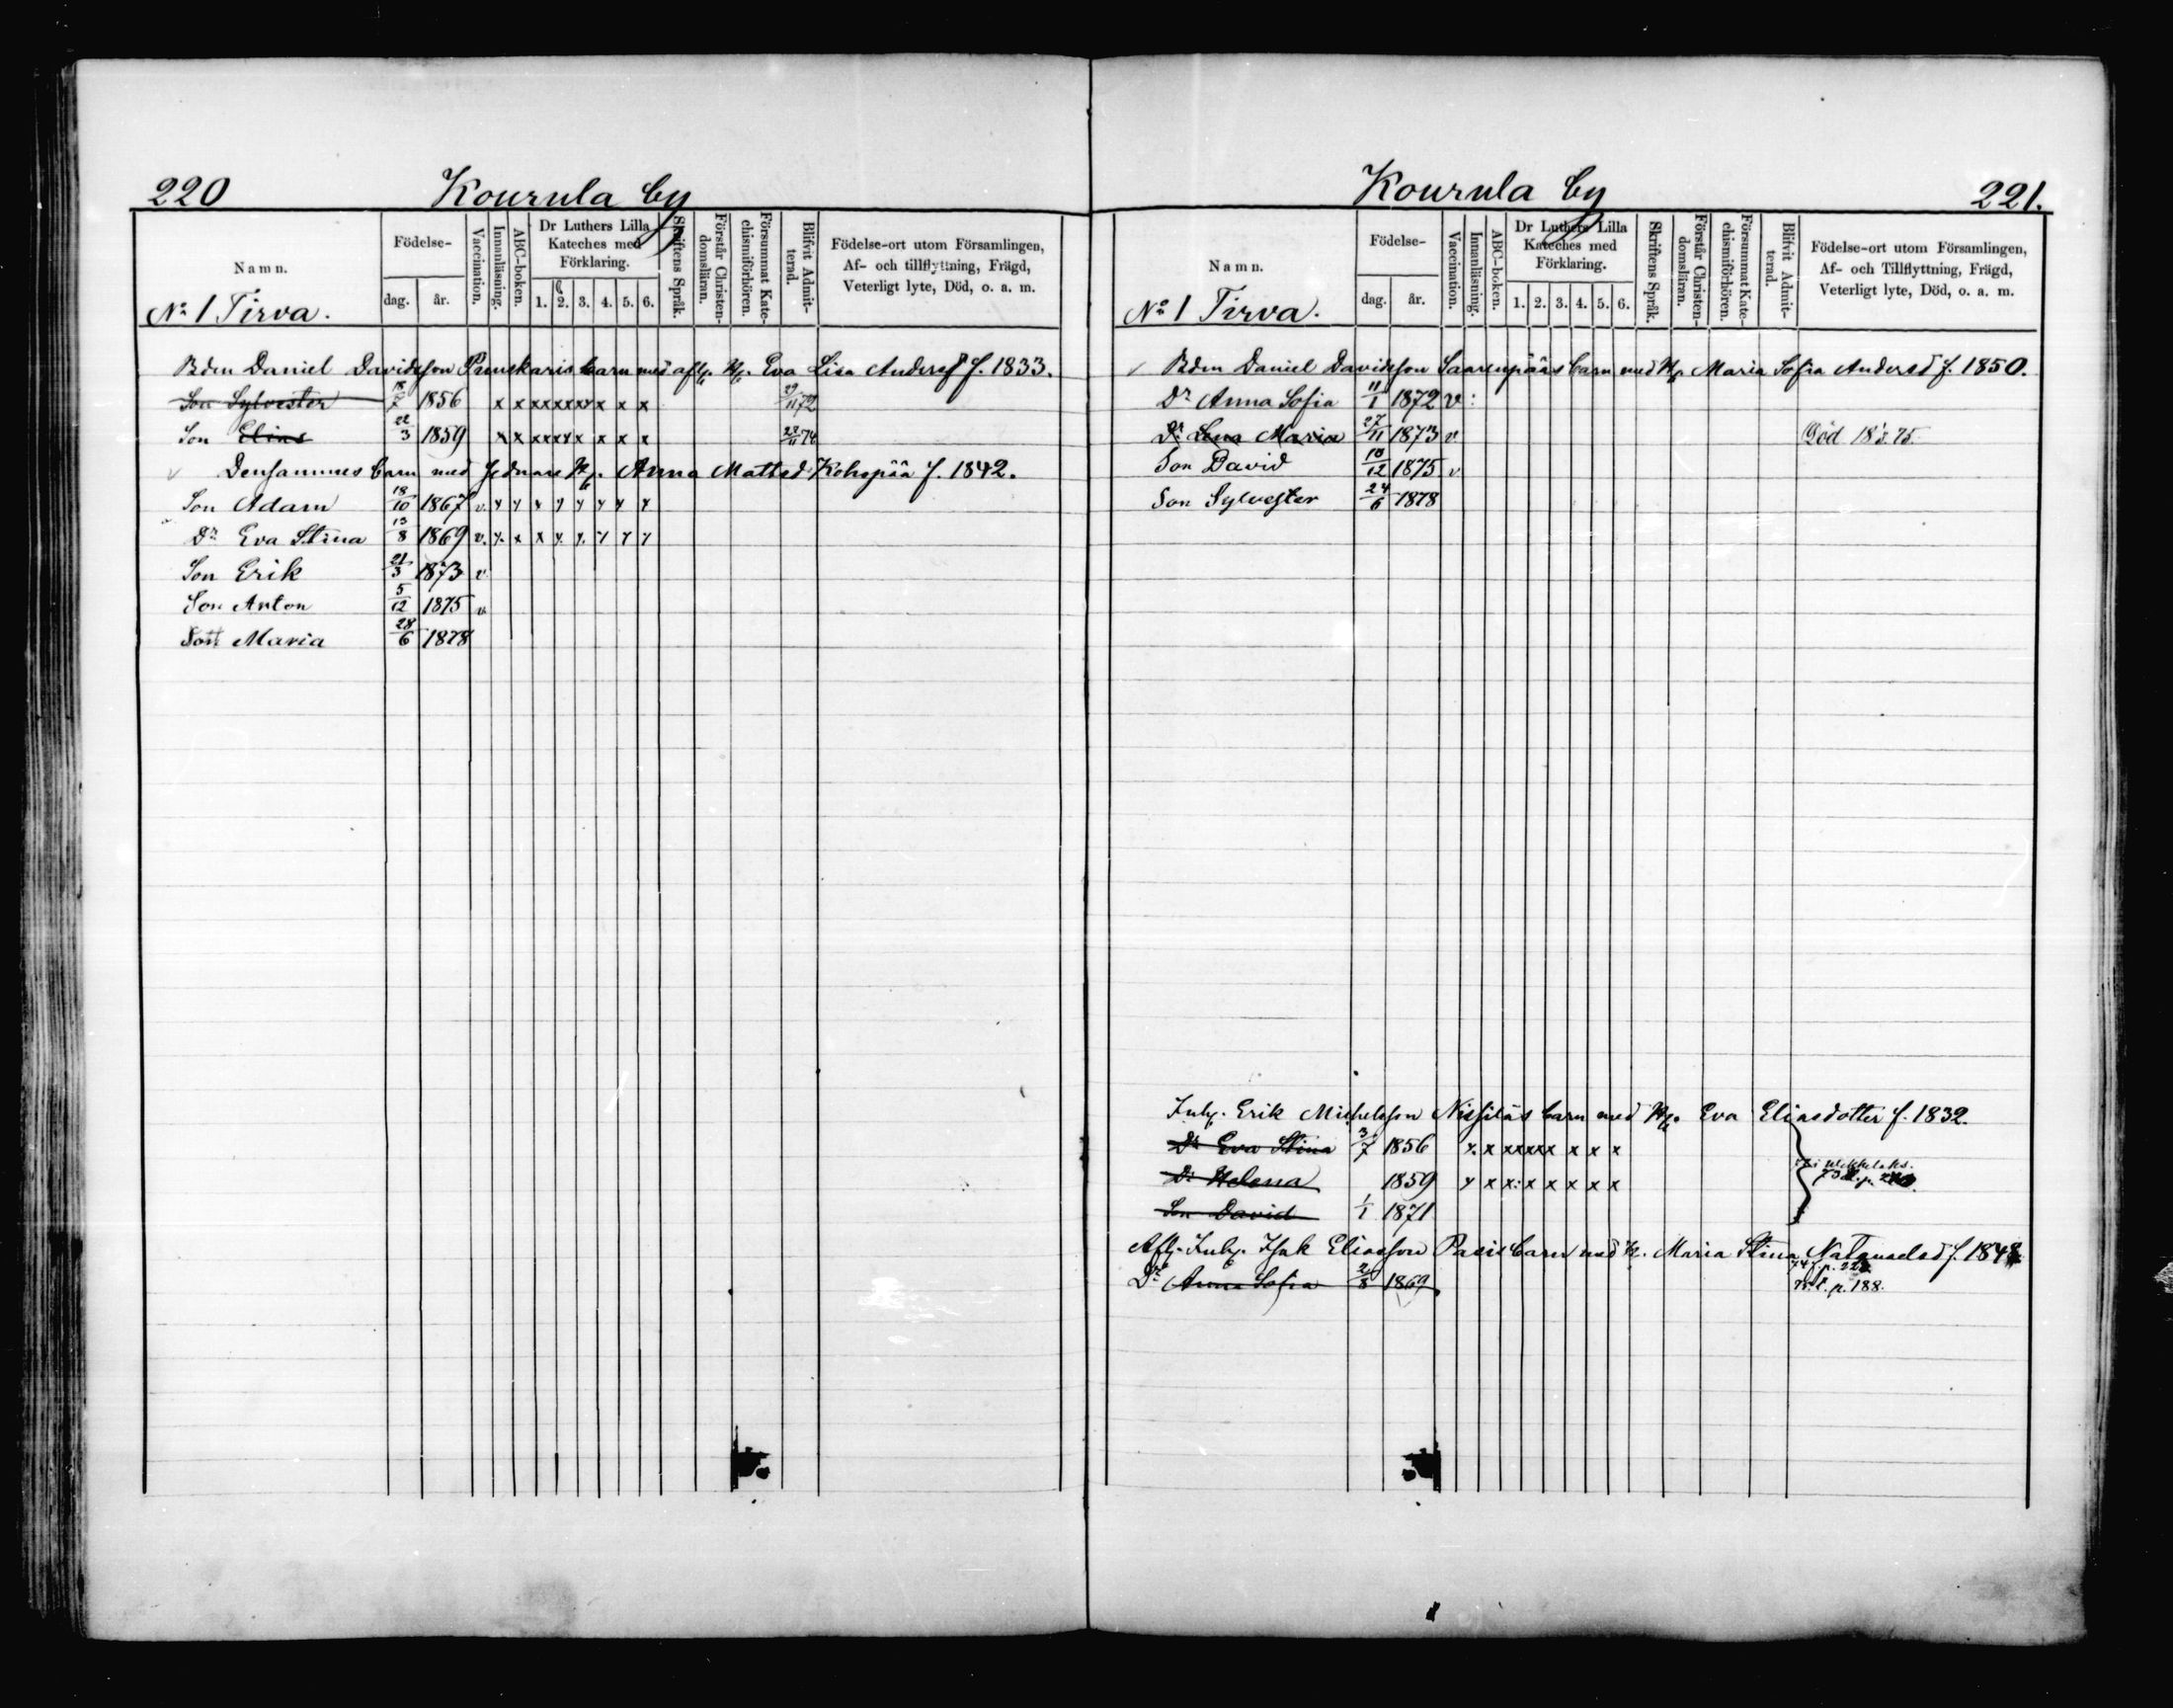 220 Kourula by
Namn. Födelse- dag. år. Vaccination. Innanläsning. ABC-boken. Dr Luthers Lilla Kateches med Förklaring. 1. 2. 3. 4. 5. 6. Skriftens Språk. Förstår Christen-domsläran. Försummat Kate-chismiförhören. Blifvit Admit-terad. Födelse-ort utom Församlingen, Af- och tillflyttning, Frägd, Veterligt lyte, Död, o. a. m.
No 1 Tirva.
Bdm Daniel Davidsson barn med afl. H. Eva Lisa Andersd f. 1833.
Son Sylvester 18/7 1856 x x x x x x x x x x x 29/11 72
Son Elias 22/3 1859 x x x x x x x x x x 22/11 74
v Densammes barn med sednare H. Anna Mattsd Kohopää f. 1842.
Son Adam 18/10 1867 v. x x x x x x x x
Dr Eva Stina 13/8 1869 v. x x x x x x x x
Son Erik 21/3 1873 v
Son Anton 5/12 1875 v
Maria 28/6 1878
Kourula by 221.
Namn. Födelse- dag. år. Vaccination. Innanläsning. ABC-boken. Dr Luthers Lilla Kateches med Förklaring. 1. 2. 3. 4. 5. 6. Skriftens Språk. Förstår Christen-domsläran. Försummat Kate-chismiförhören. Blifvit Admit-terad. Födelse-ort utom Församlingen, Af- och Tillflyttning, Frägd, Veterligt lyte, Död, o. a. m.
No 1 Tirva.
v Bdm Daniel Davidsson Saarenpääs barn med H. Maria Sofia Andersd f. 1850.
Dr Anna Sofia 11/1 1872 v
Dr Lena Maria 27/11 1873 v Död 75.
Son David 10/12 1875 v
Son Sylvester 24/6 1878
Inh. Erik Michelsson Nissiläs barn med H. Eva Eliasdotter f. 1832.
Dr Eva Stina 3/7 1856 x x x x x x x x x x
Dr Helena 1859 x x x x x x x x x
Son David 1/1 1871
Afl. Inh. Isak Eliasson Pasis barn med H. Maria Stina Natanaelsd f. 1848
Dr Anna Sofia 2/8 1869 p. 188.